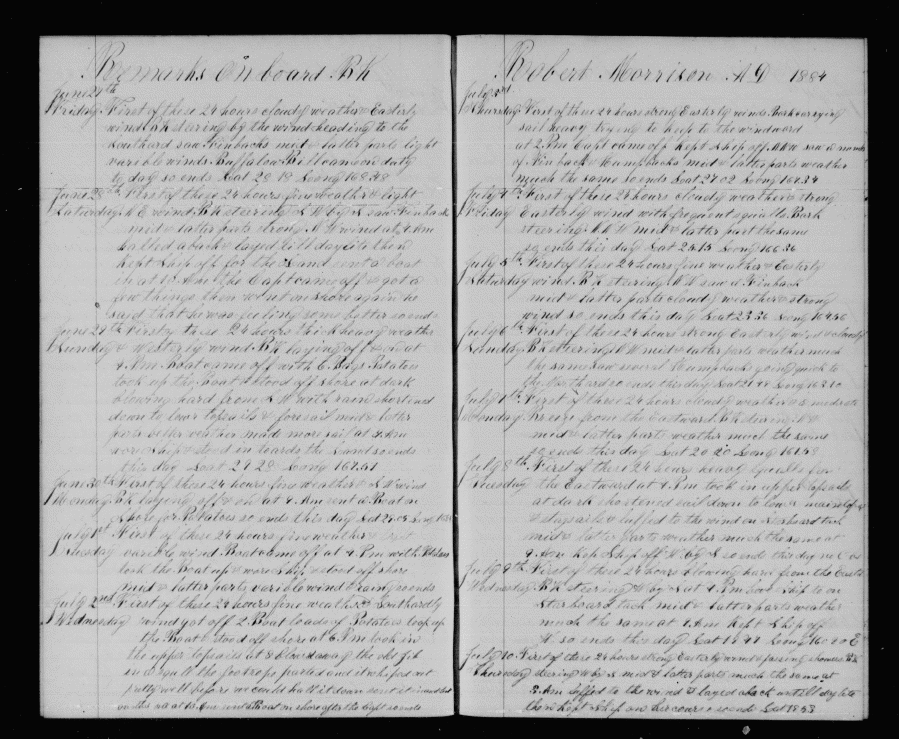 Remarks On board Bk
June 27th
Friday First of these 24 hours cloudy weather & Easterly
wind Bk stearing by the wind heading to the
Southard saw Finbacks mid & latter parts light
variable winds Buffalow Bill came on duty
to day so ends Lat 28 18 Long 168 48
June 28th First of these 24 hours fine weather & light
Saturday N E wind Bk steering S W by S saw Finback
mid & latter parts strong N W wind at 4 Am
halled aback & layed till day lite then
Kept Ship off for the Land sent a boat
in at 10 Am the Capt came off & got a
few things then went on shore again he
said that he was feeling some better so ends
June 29th First of these 24 hours thick heavy weather
Sunday & Westerly wind Bk laying off & on at
4 Am Boat came off with 6 Bags Potatoes
took up the Boat & stood off shore at dark
blowing hard from S W with rain shortened
down to lower topsails & foresail mid & latter
parts better weather made more sail at 4 Am
wore ship & stood in towards the Land so ends
this day Lat 29 29 Long
June 30th First of these 24 hours fine weather & S W wind
Monday Bk laying off & on at 4 Am sent a Boat on
Shore for Potatoes so ends this day Lat
July 1st First of these 24 hours fine weather & light
Tuesday variable wind Boat came off at 4 Pm with Potatoes
took the Boat up & wore Ship & stood off shore
mid & latter parts varible wind & calm so ends
July 2nd First of these 24 hours fine weather & Southardly
Wednesday wind got off 2 Boat loads of Potatoes took up
the Boat & stood off shore at 6 Pm took in
the upper topsails at 8 Pm the Jib
in a squall the footrope parted and it whiped out
pretty well before we could hall it down sent it in and bent
another at 10 Am sent a Boat on shore after the Capt so ends
Robert Morrison A D 1884
July 3rd
Thursday First of these 24 hours strong Easterly winds Bark carrying
sail heavy trying to keep to the windward
at 2 Pm Capt came off Kept Ship off saw a number
of Finback & Humpbacks mid & latter parts weather
much the same so ends Lat 27 02 Long 167 34
July 4th First of these 24 hours cloudy weather & strong
Friday Easterly wind with frequent squalls Bark
steering mid & latter part the same
so ends this day Lat Long 166 36
July 5th First of these 24 hours fine weather & Easterly
Saturday wind Bk steering saw a Finback
mid & latter parts cloudy weather & strong
wind so ends this day Lat 23 36 Long
July 6th First of these 24 hours strong Easterly wind & cloudy
Sunday Bk steering mid & latter parts weather much
the same saw several Humpbacks going quick to
the so ends this day Lat Long
July 7th First of these 24 hours cloudy weather & moderate
Monday Breeze from the Eastward Bk steering
mid & latter parts weather much the same
so ends this day Lat 20 20 Long
July 8th First of these 24 hours heavy squalls from
Tuesday the Eastward at 4 Pm took in upper topsails
at dark shortened sail down to lower maintopsail
& staysails & luffed to the wind on Starboard tack
mid & latter parts weather much the same at
4 Am kep Ship off W by S so ends this day no Obs
July 9th First of these 24 hours blowing hard from the Eastd
Wednesday Bk steering W by S at 4 Pm luf Ship to on
Starboard tack mid & latter parts weather
much the same at 4 Am Kept Ship off
W so ends this day Lat Long
July 10th First of these 24 hours strong Easterly winds & passing showers Bk
Thursday steering W by S mid & latter parts much the same at
3 Am luffed to the wind & layed aback untill day lite
then kept Ship on her course so ends Lat